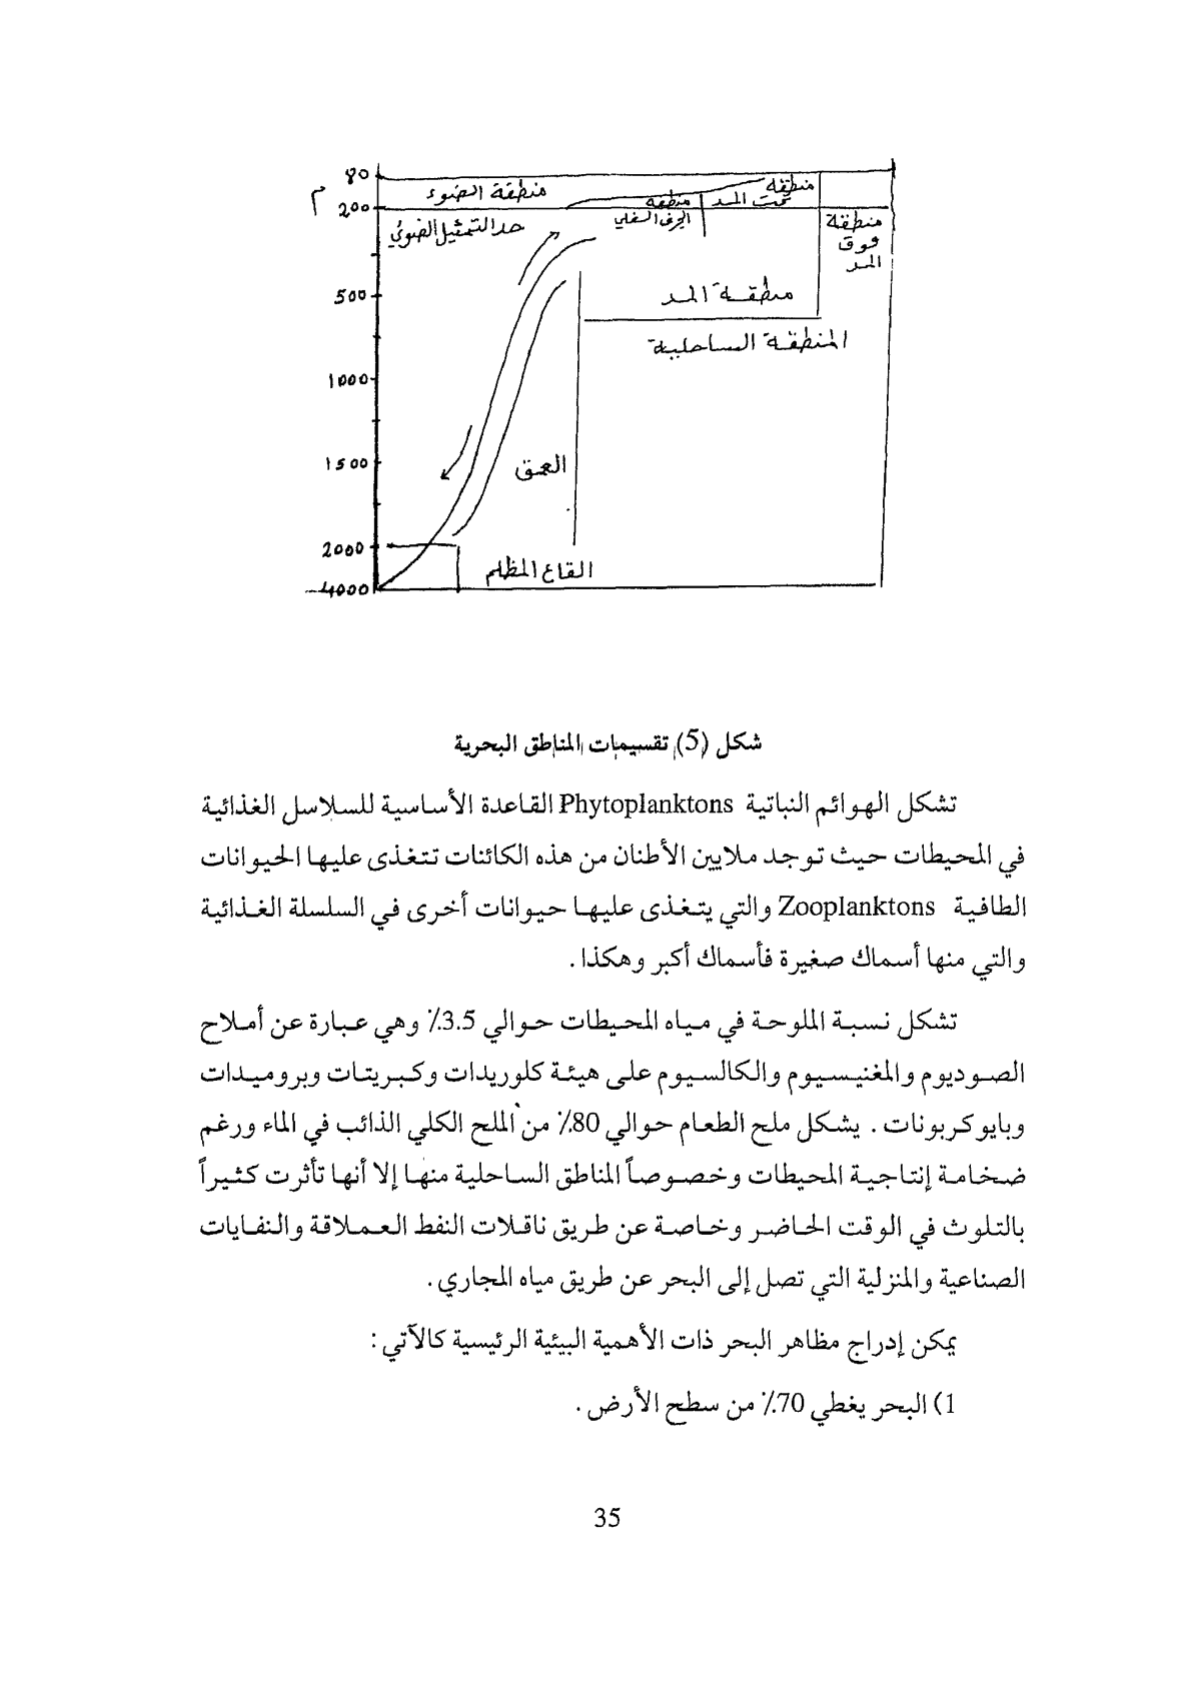 80
م
200
500
1000
1500
2000
4000
منطقة الضوء
حد التمثيل الضوئي
منطقة
الجرف السفلي
منطقة
تحت المد
منطقة
فوق
المد
منطقة المد
المنطقة الساحلية
العمق
القاع المظلم
شكل (5) تقسيمات المناطق البحرية
تشكل الهوائم النباتية Phytoplanktons القاعدة الأساسية للسلاسل الغذائية
في المحيطات حيث توجد ملايين الأطنان من هذه الكائنات تتغذى عليها الحيوانات
الطافية Zooplanktons والتي يتغذى عليها حيوانات أخرى في السلسلة الغذائية
والتي منها أسماك صغيرة فأسماك أكبر وهكذا .
تشكل نسبة الملوحة في مياه المحيطات حوالي 3.5٪ وهي عبارة عن أملاح
الصوديوم والمغنيسيوم والكالسيوم على هيئة كلوريدات وكبريتات وبروميدات
وبايوكربونات . يشكل ملح الطعام حوالي 80٪ من الملح الكلي الذائب في الماء ورغم
ضخامة إنتاجية المحيطات وخصوصاً المناطق الساحلية منها إلا أنها تأثرت كثيراً
بالتلوث في الوقت الحاضر وخاصة عن طريق ناقلات النفط العملاقة والنفايات
الصناعية والمنزلية التي تصل إلى البحر عن طريق مياه المجاري .
يمكن إدراج مظاهر البحر ذات الأهمية البيئية الرئيسية كالآتي :
1) البحر يغطي 70٪ من سطح الأرض .
35